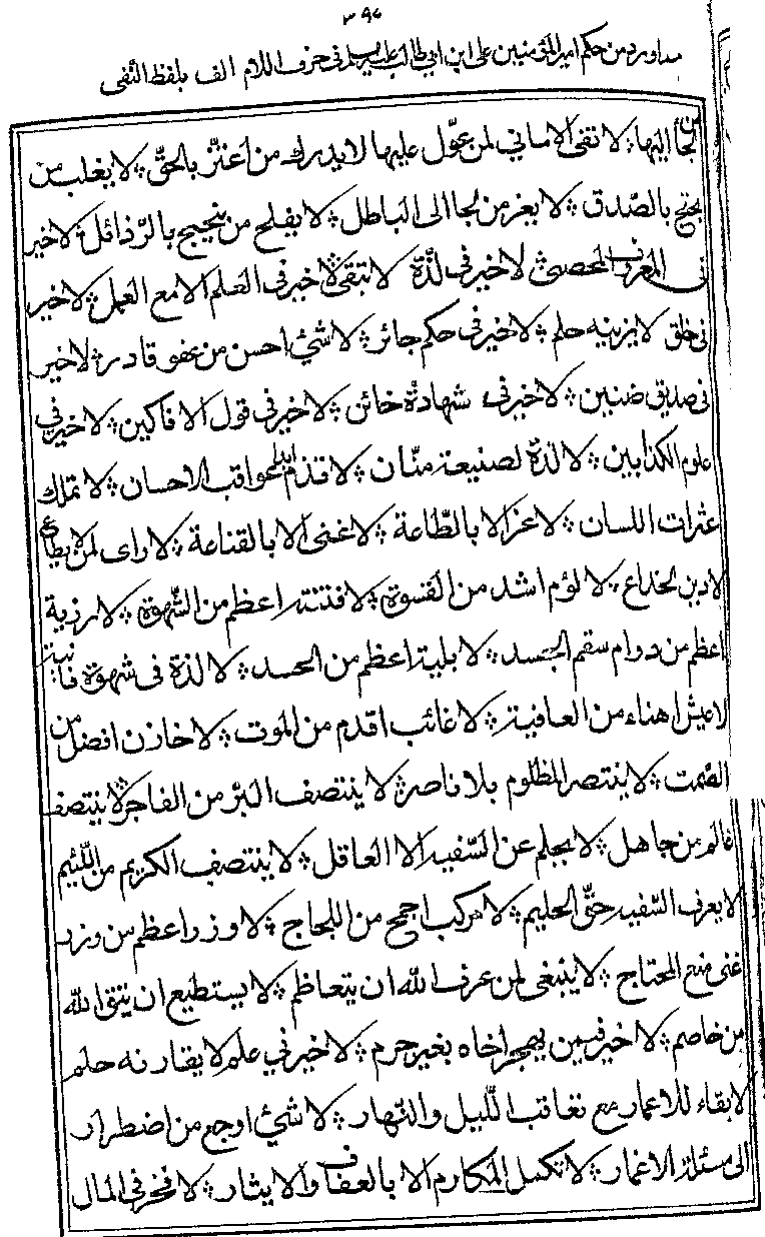 مما ورد من حكم امير المؤمنين علي ابن ابي طالب عليه السلام في حرف اللام الف بلفظ النفى
من لجأ اليها ۞ لا تفى الامانى لمن عوّل عليها لا يدرك من اعتزّ بالحقّ ۞ لا يغلب من
يحتج بالصّدق ۞ لا يعز من لجا الى الباطل ۞ لا يفلح من يتبجح بالرّذائل ۞ لا خير
فى المعروف المحصى ۞ لا خير فى لذّة لا تبقى ۞ لا خير فى العلم الا مع العمل ۞ لا خير
فى خلق لا يزينه حلم ۞ لا خير فى حكم جائر ۞ لا شئ احسن من عفو قادر ۞ لا خير
فى صديق ضنين ۞ لا خير فى شهادة خائن ۞ لا خير فى قول الافاكين ۞ لا خير فى
علوم الكذابين ۞ لا لذة لصنيعة منّان ۞ لا تذم ابدا عواقب الاحسان ۞ لا تملك
عثرات اللسان ۞ لا عز الا بالطّاعة ۞ لا غنى الا بالقناعة ۞ لا راى لمن لا يطاع
لا دين لخداع ۞ لا لؤم اشد من القسوة ۞ لا فتنة اعظم من الشّهوة ۞ لا رزية
اعظم من دوام سقم الجسد ۞ لا بلية اعظم من الحسد ۞ لا لذة فى شهوة فانية
لا عيش اهناء من العافية ۞ لا غائب اقدم من الموت ۞ لا خازن افضل من
الصّمت ۞ لا ينتصر المظلوم بلا ناصر ۞ لا ينتصف البرّ من الفاجر ۞ لا ينتصف
عالم من جاهل ۞ لا يحلم عن السّفيه الا العاقل ۞ لا ينتصف الكريم من اللّئيم
لا يعرف السّفيه حقّ الحليم ۞ لا مركب اجمح من اللجاج ۞ لا وزر اعظم من وزر
غنى منع المحتاج ۞ لا ينبغى لمن عرف الله ان يتعاظم ۞ لا يستطيع ان يتق الله
من خاصم ۞ لا خير فيمن يهجر اخاه بغير جرم ۞ لا خير في علم لا يقارنه حلم
لا بقاء للاعمار مع تعاقب اللّيل والنّهار ۞ لا شئ اوجع من اضطرار
الى مسئلة الاغمار ۞ لا تكمل المكارم الا بالعفاف والايثار ۞ لا فخر في المال